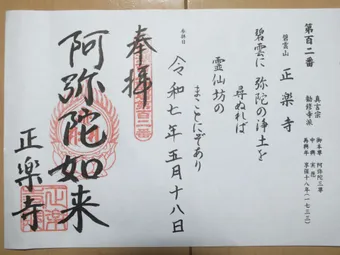 第百二番
真言宗
勧修寺派
碧雲山 正楽寺
御本尊 阿弥陀三尊
中興 実恵
再興年 享保十八年(一七三三)
碧雲に 弥陀の浄土を
尋ぬれば
霊仙坊の
まことにぞあり
参拝日 令和七年五月十八日
奉拝
百二番
阿弥陀如来
正楽寺